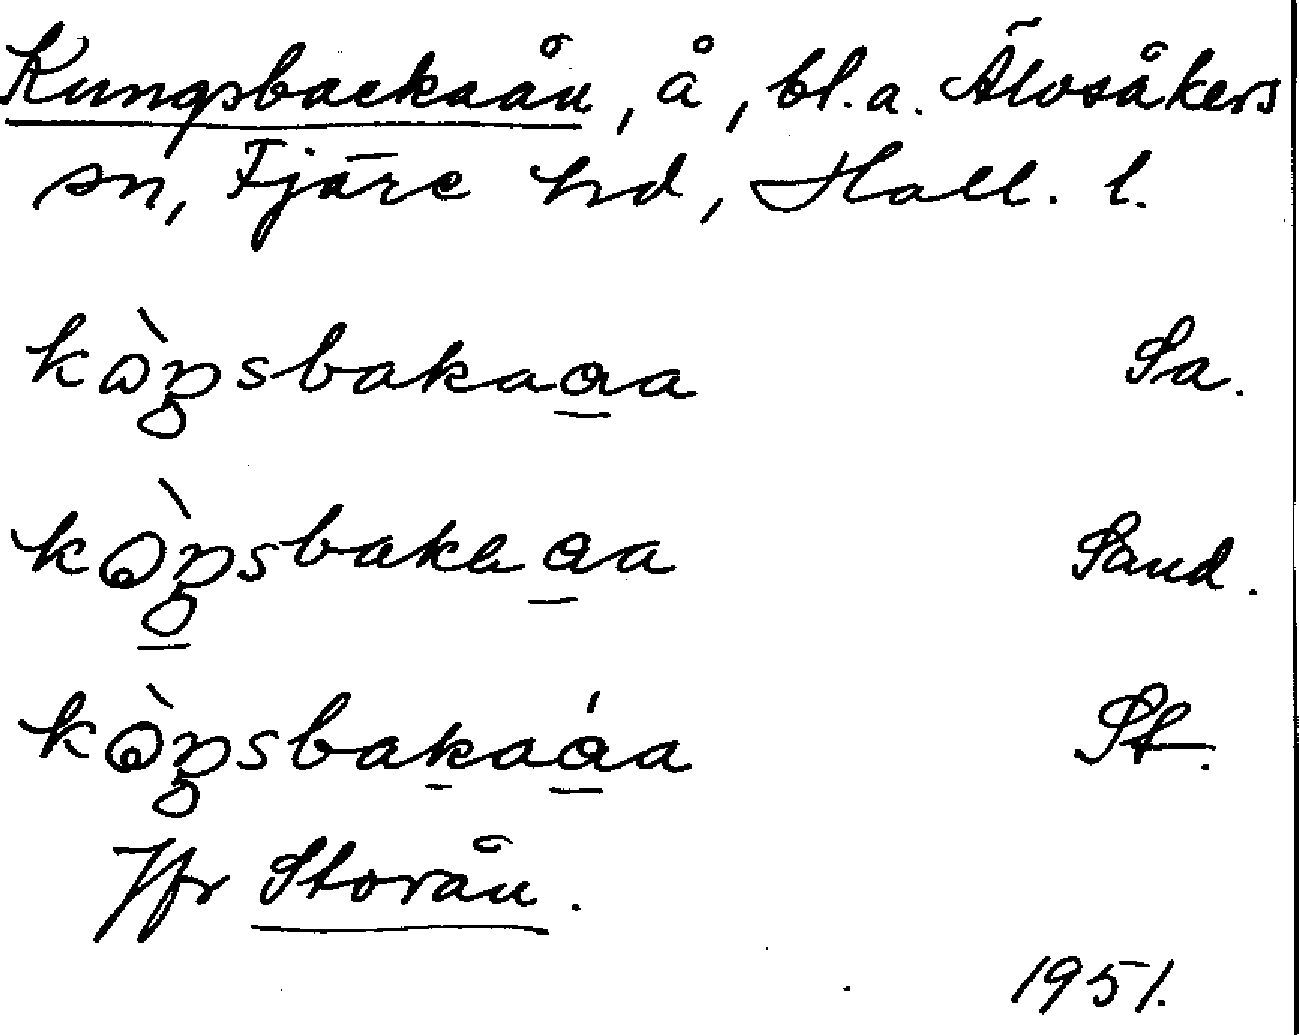 Kungsbackaån, å, bl.a. Älvsåkers
sn, Fjäre hd, Hall. l.
kòŋsbakaɑa Sa.
kòŋsbakaɑa Sand.
kòŋsbakaɑ́a St.
Jfr Storån.
1951.